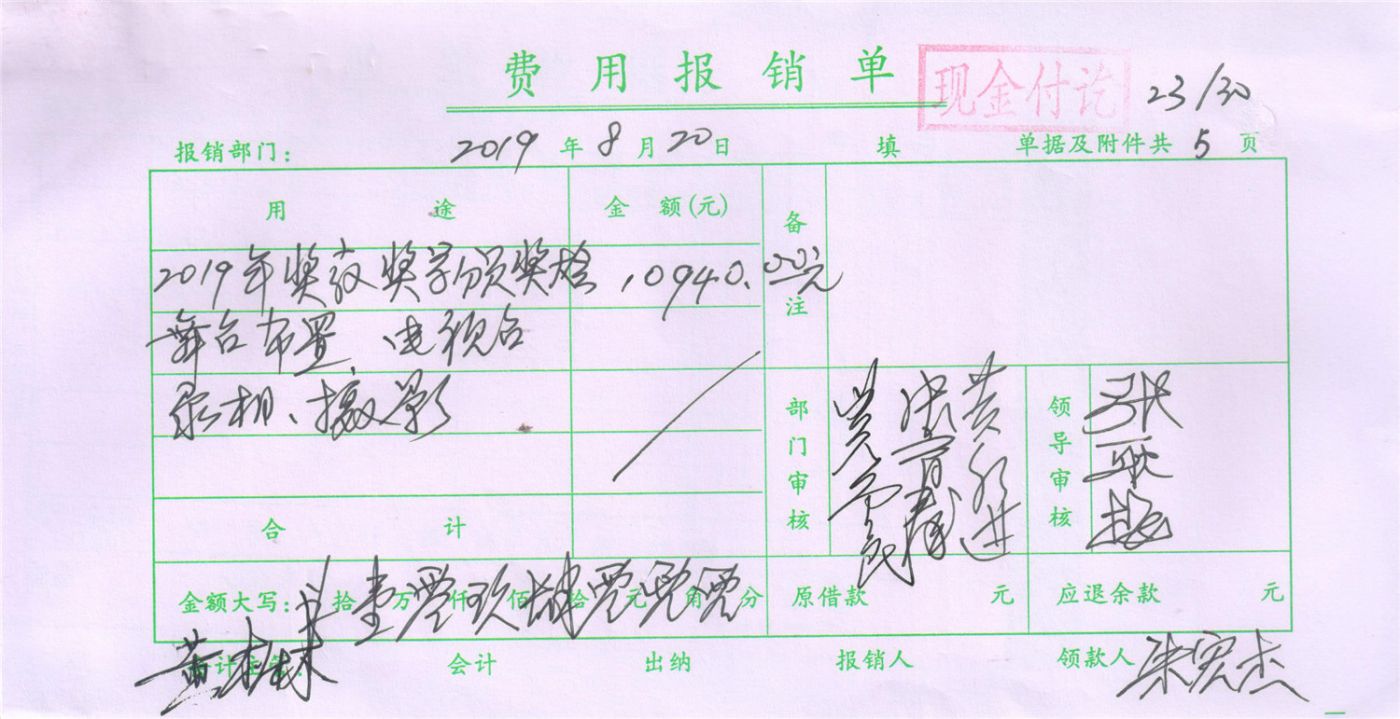 费用报销单
现金付讫
23/30
报销部门： 2019年8月20日 填 单据及附件共5页
用途 金额(元) 备注
2019年奖教奖学颁奖大会 10940.00元
舞台布置、电视台
录相、摄影
部门审核 领导审核
合计
金额大写： 拾壹万零仟玖佰肆拾零元零角零分 原借款 元 应退余款 元
会计 出纳 报销人 领款人